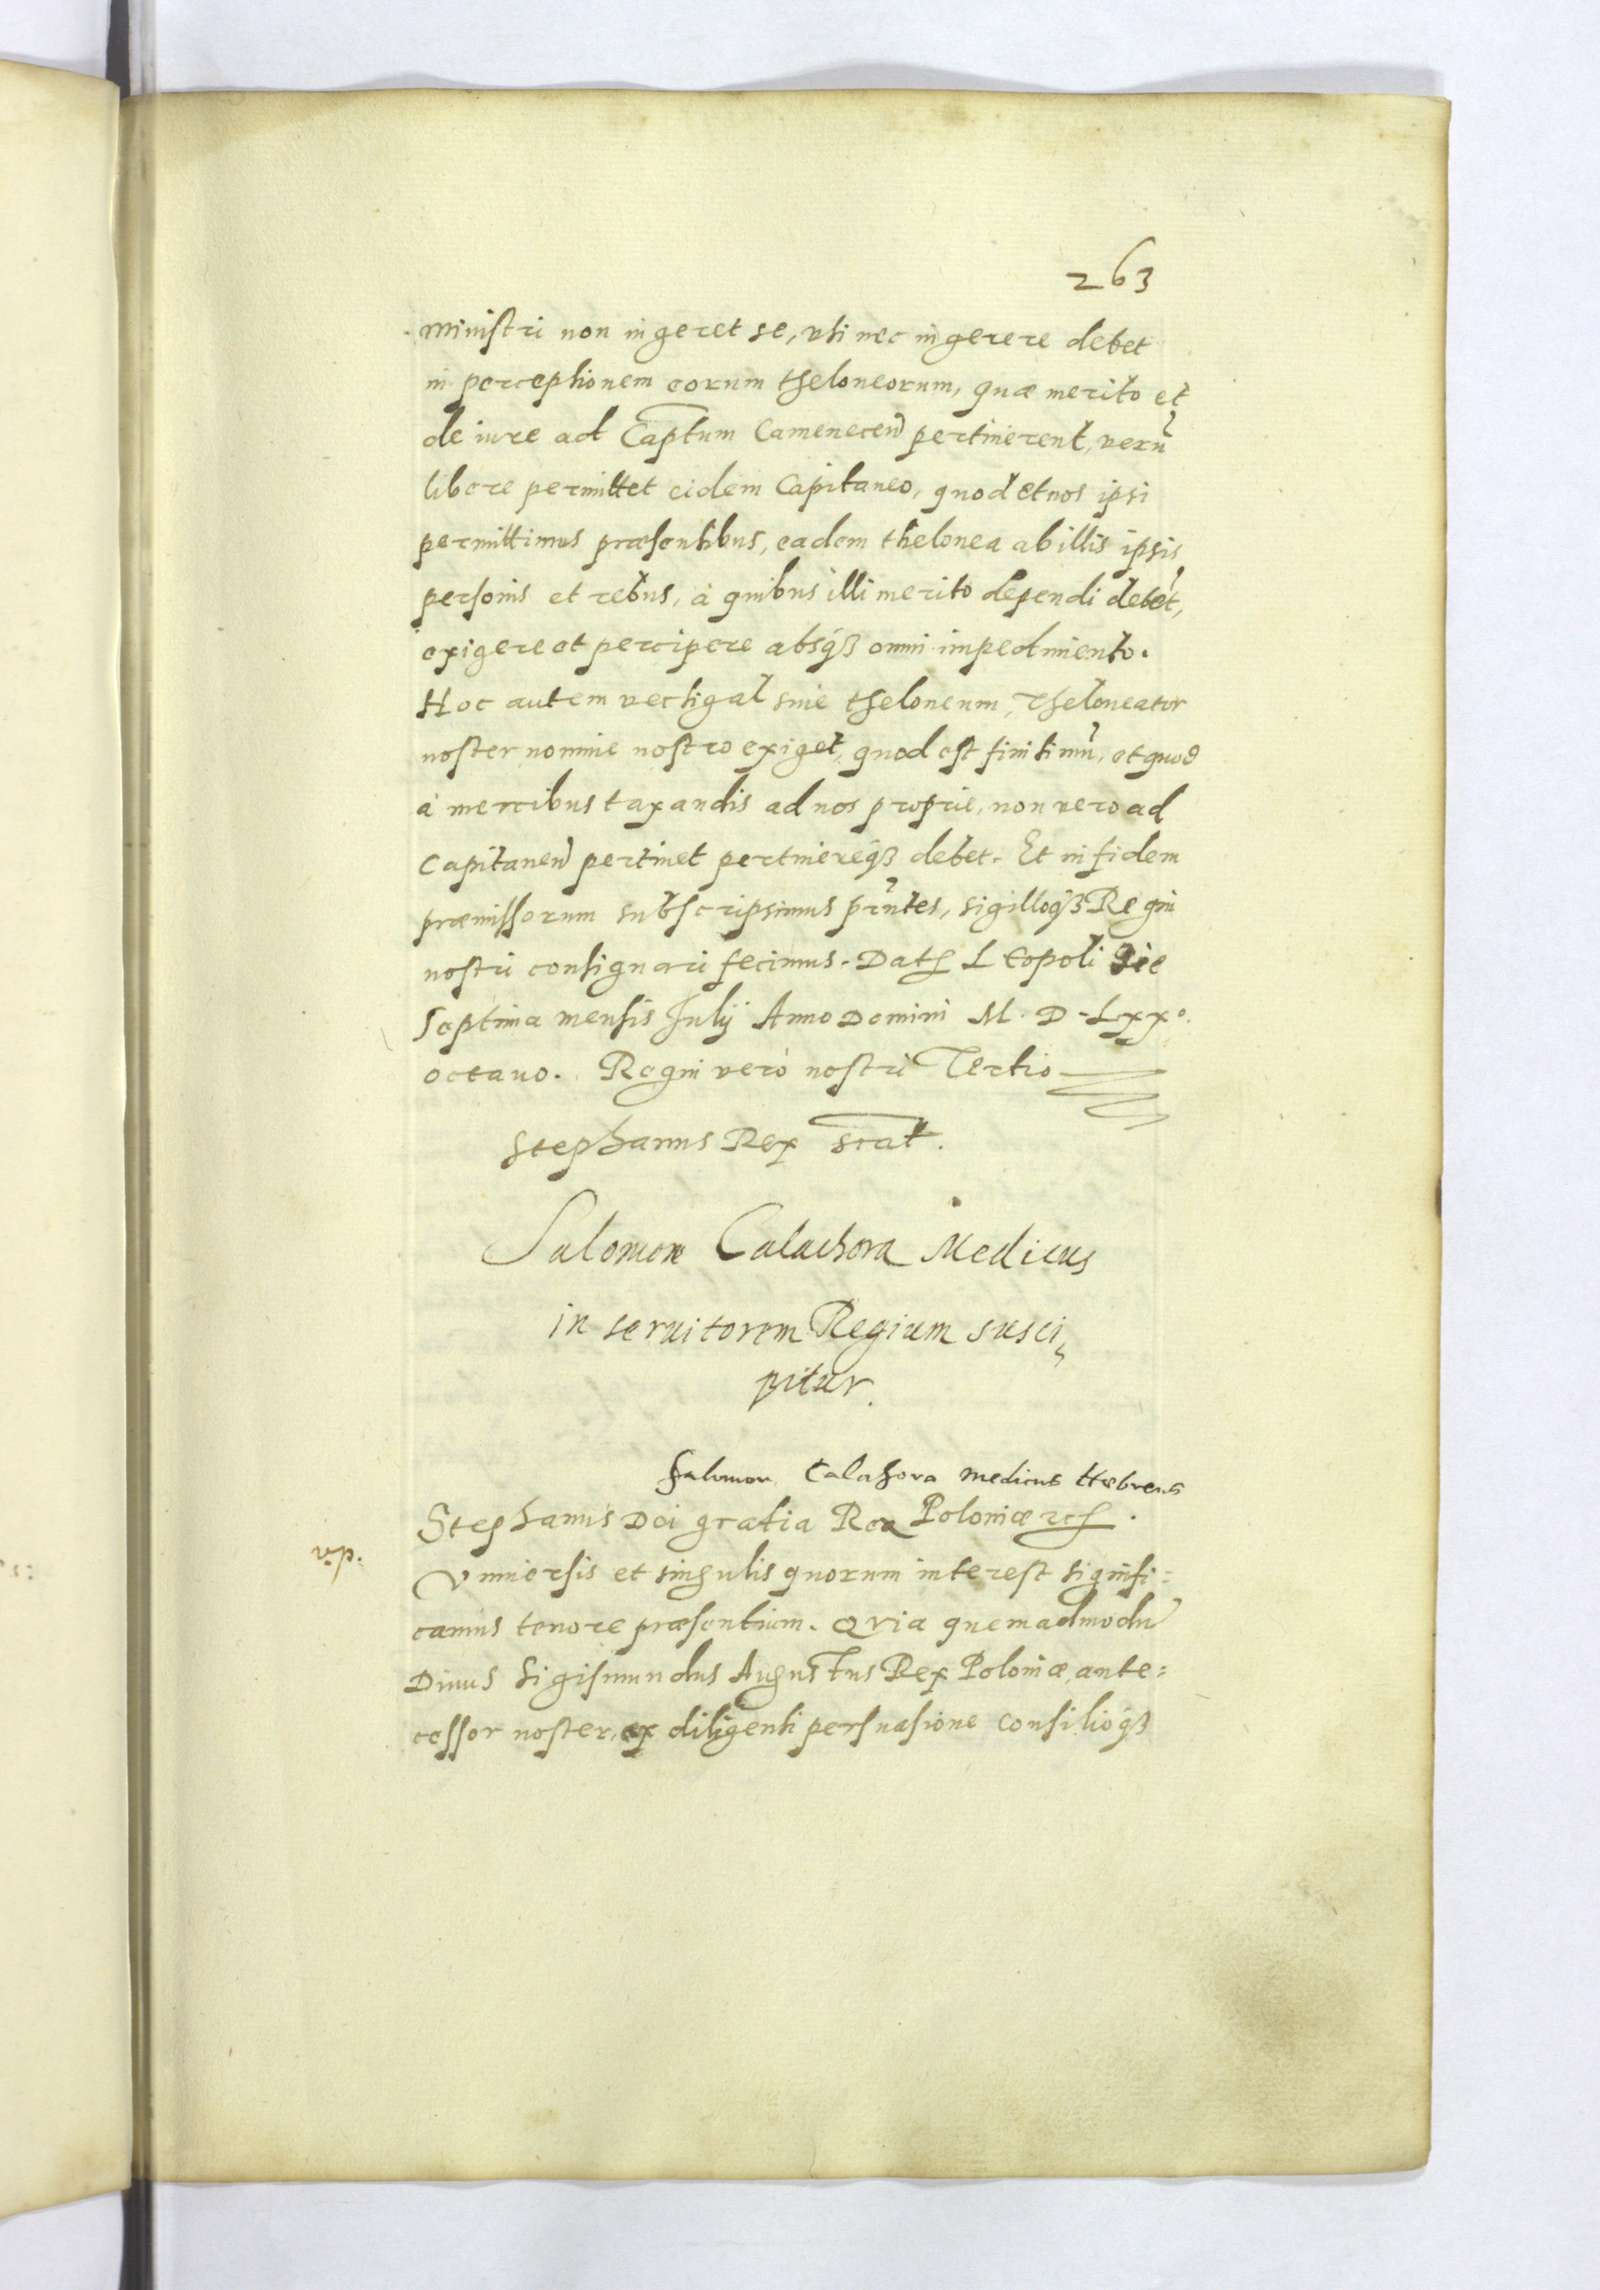 263
ministri non ingeret se, uti nec ingerere debet
in perceptionem eorum theloneorum, quæ merito et
de iure ad Cap̄tum Camenecen̄ pertinerent, verū
libere permittet eidem Capitaneo, quod et nos ipsi
permittimus præsentibus, eadem thelonea ab illis ipsis
personis et rebus, à quibus illi merito dependi debēt,
exigere et percipere absq́ꝫ omni impedimento.
Hoc autem vectigal siue theloneum, Theloneator
noster nomine nostro exiget, quod est finitimū, et quod
à mercibus taxandis ad nos proprie, non vero ad
Capitaneū pertinet pertinereq́ꝫ debet. Et in fidem
præmissorum subscripsimus pr̄ntes, sigilloq́ꝫ Regni
nostri consignari fecimus. Datꝭ Leopoli die
Septima mensis Julij Anno Domini M. D. Lxxº.
octauo. Regni verò nostri Tertio
Stephanus Rex sc̄at.
Salomon Calachora Medicus
in seruitorem Regium susci,
pitur.
Salomon Calahora medicus Hebreus
Stephanus Dei gratia Rex Poloniæ ꝛcꝭ.
v.p.
Vniuersis et singulis quorum interest signifi:
camus tenore præsentium. Quia quemadmodū
Diuus Sigismundus Augustus Rex Poloniæ, ante:
cessor noster, ex diligenti persuasione consilioq́ꝫ